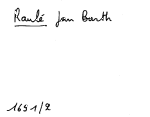 Raulé Jan Barth
1691/2